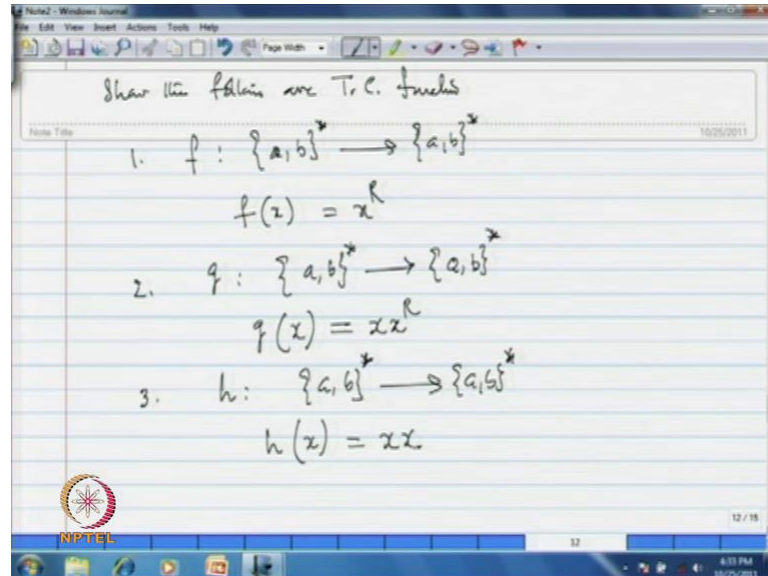 Note2 - Windows Journal
File Edit View Insert Actions Tools Help
Page Width
Show the are T.C.
Note Title
10/25/2011
1. f : {a, b}* → {a, b}*
f(x) = x^R
2. g : {a, b}* → {a, b}*
g(x) = xx^R
3. h : {a, b}* → {a, b}*
h(x) = xx
NPTEL
12 / 15
12
6:33 PM
10/25/2011